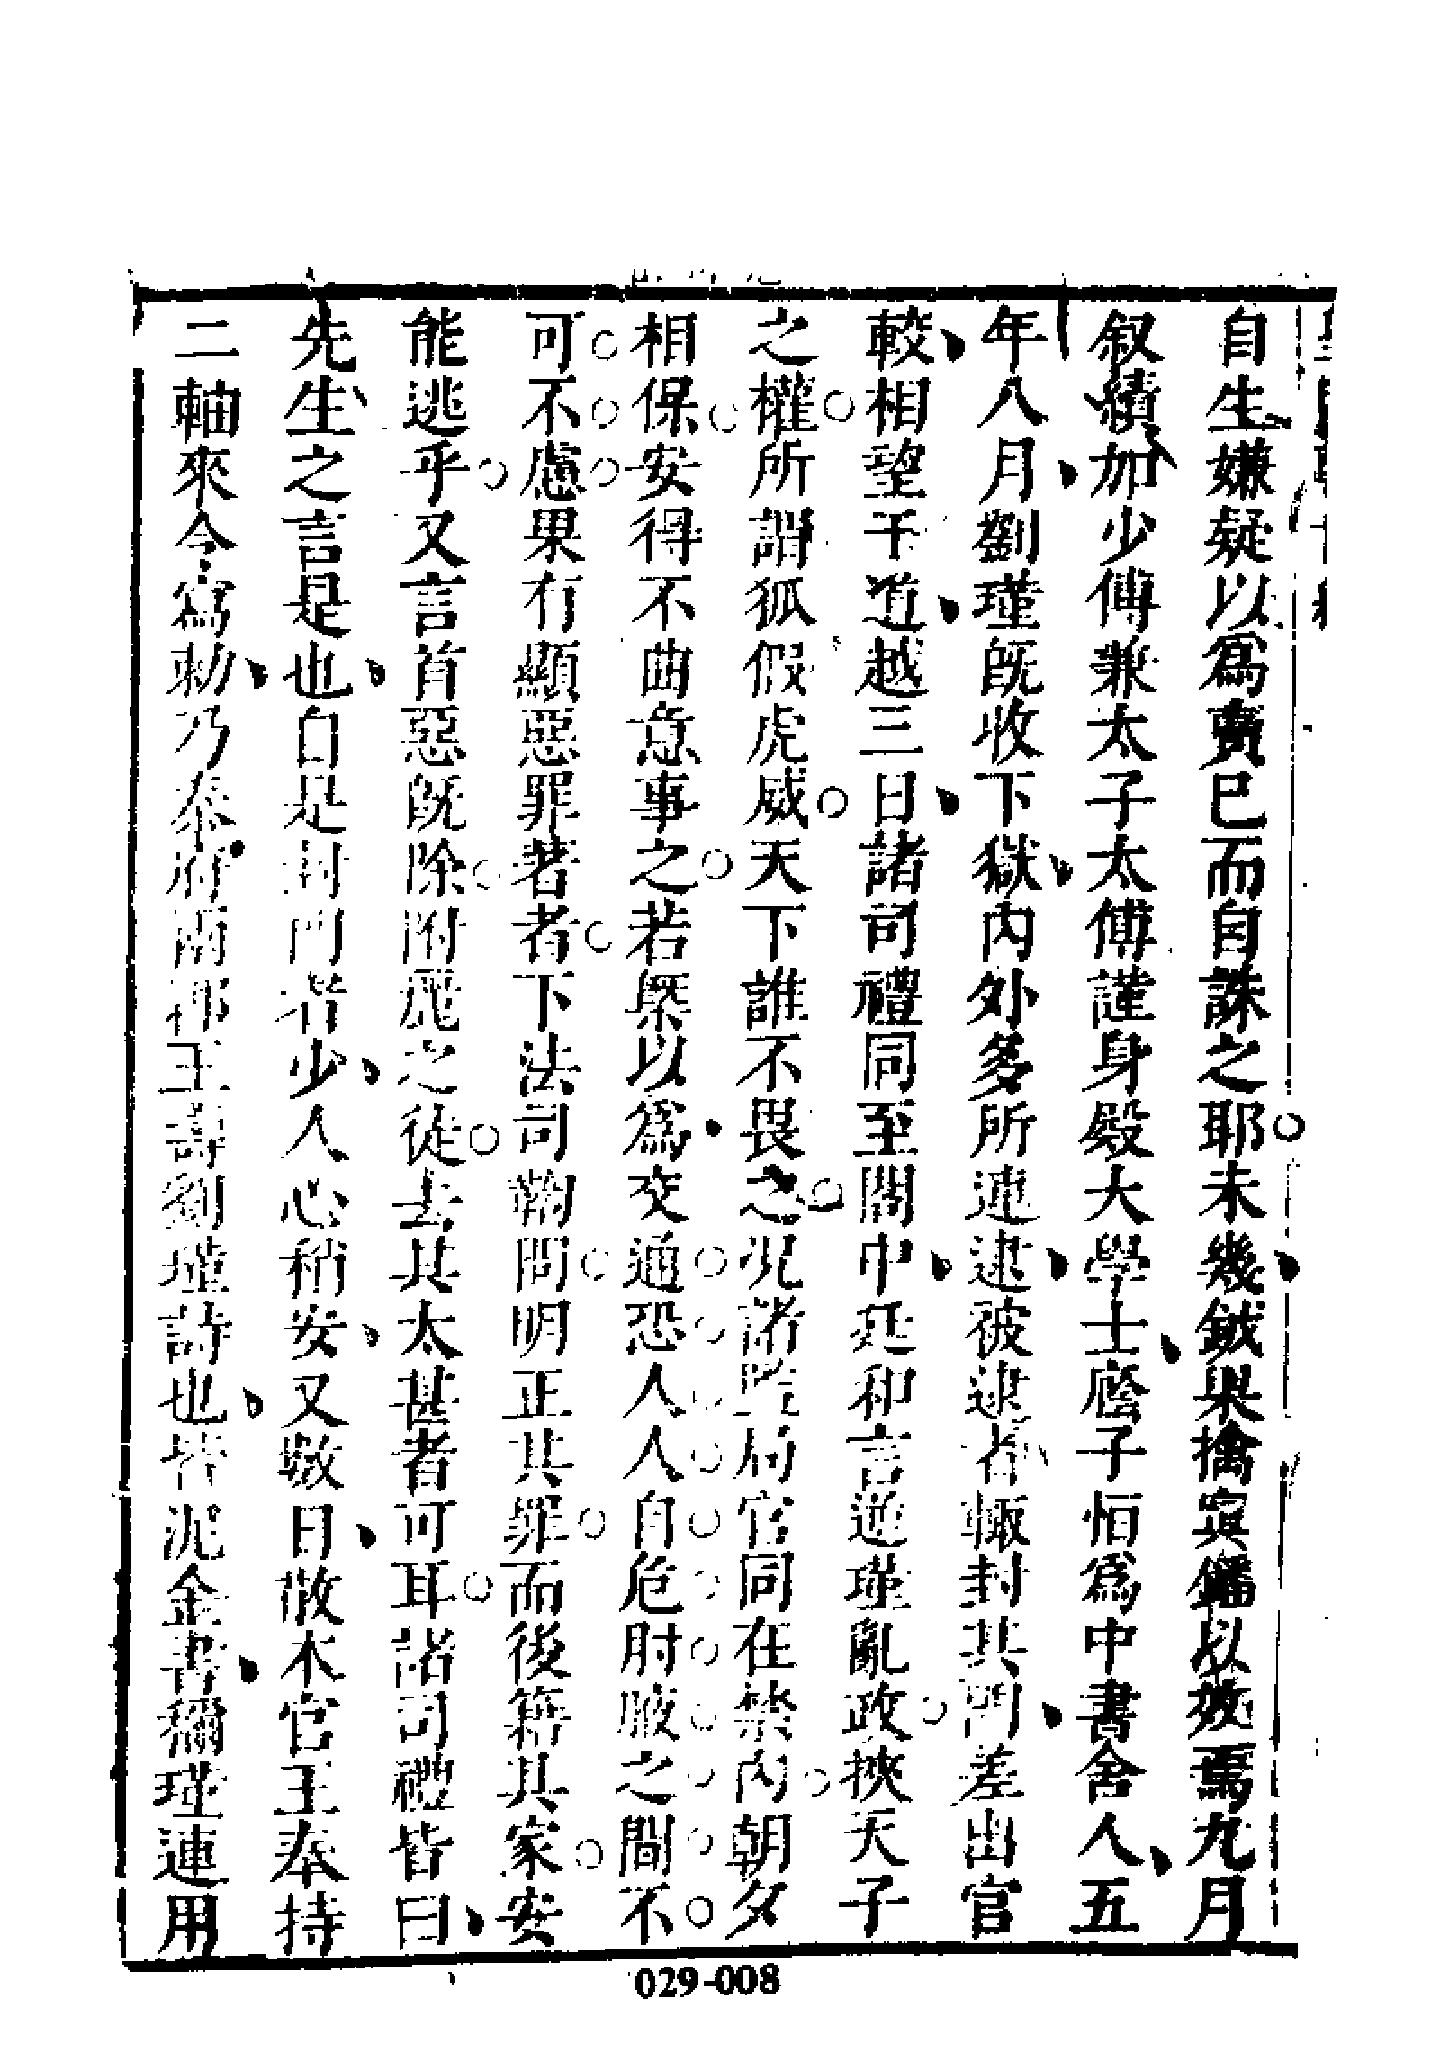 自生嫌疑以爲賣已而自誅之耶未幾鉞果擒寘鐇以效焉九月
叙續加少傅兼太子太傅謹身殿大學士廕子恒爲中書舍人五
年八月劉瑾旣收下獄內外多所連逮被逮者輙封其門差出官
較相望于道越三日諸司禮同至閣中廷和言逆瑾亂政挾天子
之權所謂狐假虎威天下誰不畏之况諸監局官同在禁內朝夕
相保安得不曲意事之若槩以爲交通恐人人自危肘腋之間不
可不慮果有顯惡罪著者下法司鞫問明正其罪而後籍其家安
能逃乎又言首惡旣除附麗之徒去其太甚者可耳諸司禮皆曰
先生之言是也自是封門者少人心稍安又數日散本官王奉持
二軸來令寫勅乃泰府兩郡王壽劉瑾詩也皆泥金書稱瑾連用
029-008